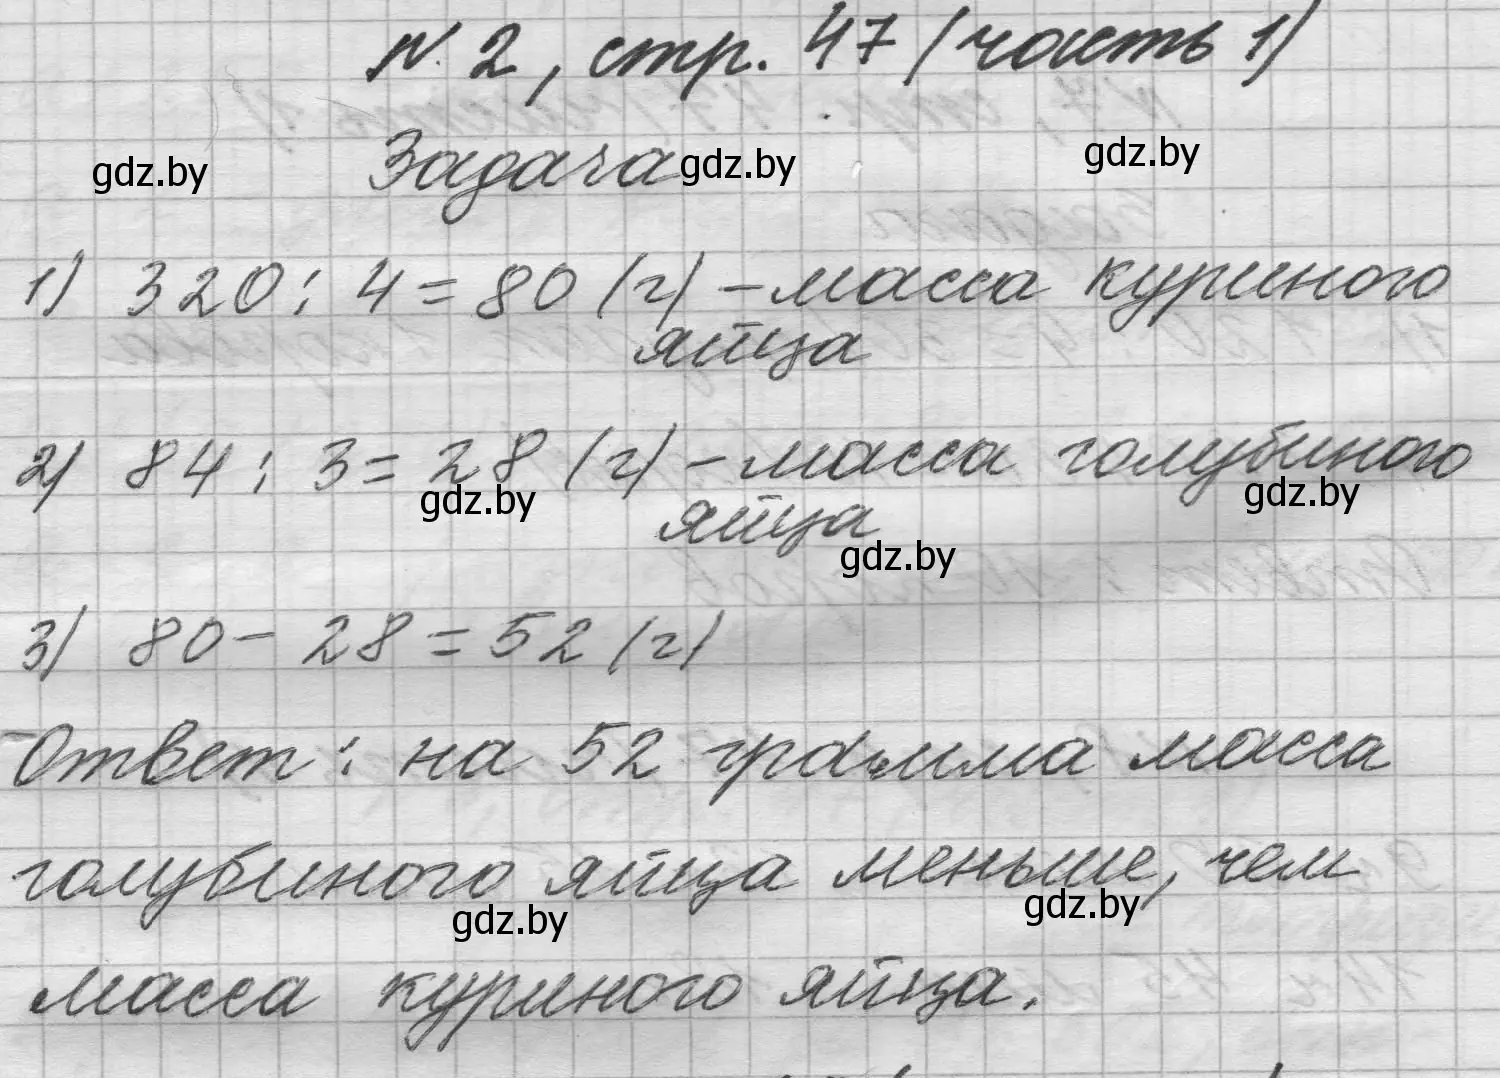 N. 2, стр. 47 (часть 1)
gdz.by Задача gdz.by gdz.by
1) 320 : 4 = 80 (г) – масса куриного
яйца
2) 84 : 3 = 28 (г) – масса голубиного
gdz.by яйца gdz.by
gdz.by
3) 80 – 28 = 52 (г)
Ответ: на 52 грамма масса
голубиного яйца меньше, чем
gdz.by gdz.by
масса куриного яйца.